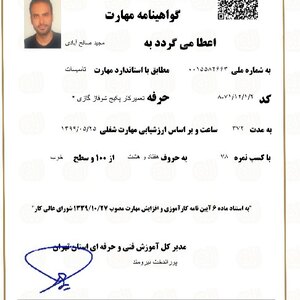 گواهینامه مهارت
اعطا می گردد به
مجید صالح آبادی
به شماره ملی ۰۰۱۵۵۸۲۶۶۳ مطابق با استاندارد مهارت تاسیسات
کد ۸-۷۱/۱۲/۱/۲ حرفه تعمیرکار پکیج شوفاژ گازی *
به مدت ۳۷۲ ساعت و بر اساس ارزشیابی مهارت شغلی ۱۳۹۶/۰۵/۲۵
با کسب نمره ۷۸ به حروف هفتاد و هشت از ۱۰۰ و سطح خوب
"به استناد ماده ۶ آیین نامه کارآموزی و افزایش مهارت مصوب ۱۳۴۹/۱۰/۲۷ شورای عالی کار"
مدیر کل آموزش فنی و حرفه ای استان تهران